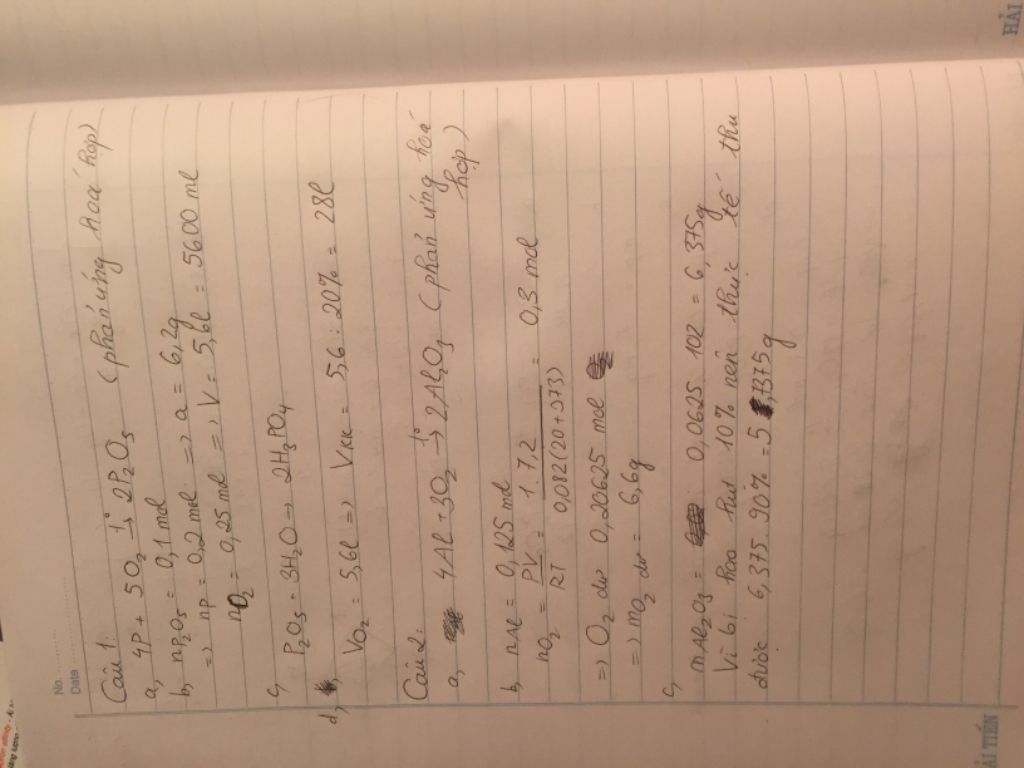 No. ............
Date ............
Câu 1:
a, 4P + 5O₂ →t° 2P₂O₅ (phản ứng hoá hợp)
b, nP₂O₅ = 0,1 mol
=> nP = 0,2 mol => a = 6,2g
nO₂ = 0,25 mol => V = 5,6l = 5600 ml
c, P₂O₅ + 3H₂O → 2H₃PO₄
d, VO₂ = 5,6l => Vkk = 5,6 : 20% = 28l
Câu 2.
a, 4Al + 3O₂ →t° 2Al₂O₃ (phản ứng hoá
hợp)
b, nAl = 0,125 mol
nO₂ = PV/RT = 1.7,2/0,082(20+273) = 0,3 mol
=> O₂ dư 0,20625 mol
=> mO₂ dư = 6,6g
c, mAl₂O₃ = 0,0625.102 = 6,375g
Vì bị hao hụt 10% nên thực tế thu
được 6,375.90% = 5,7375g
HẢI
HẢI TIẾN